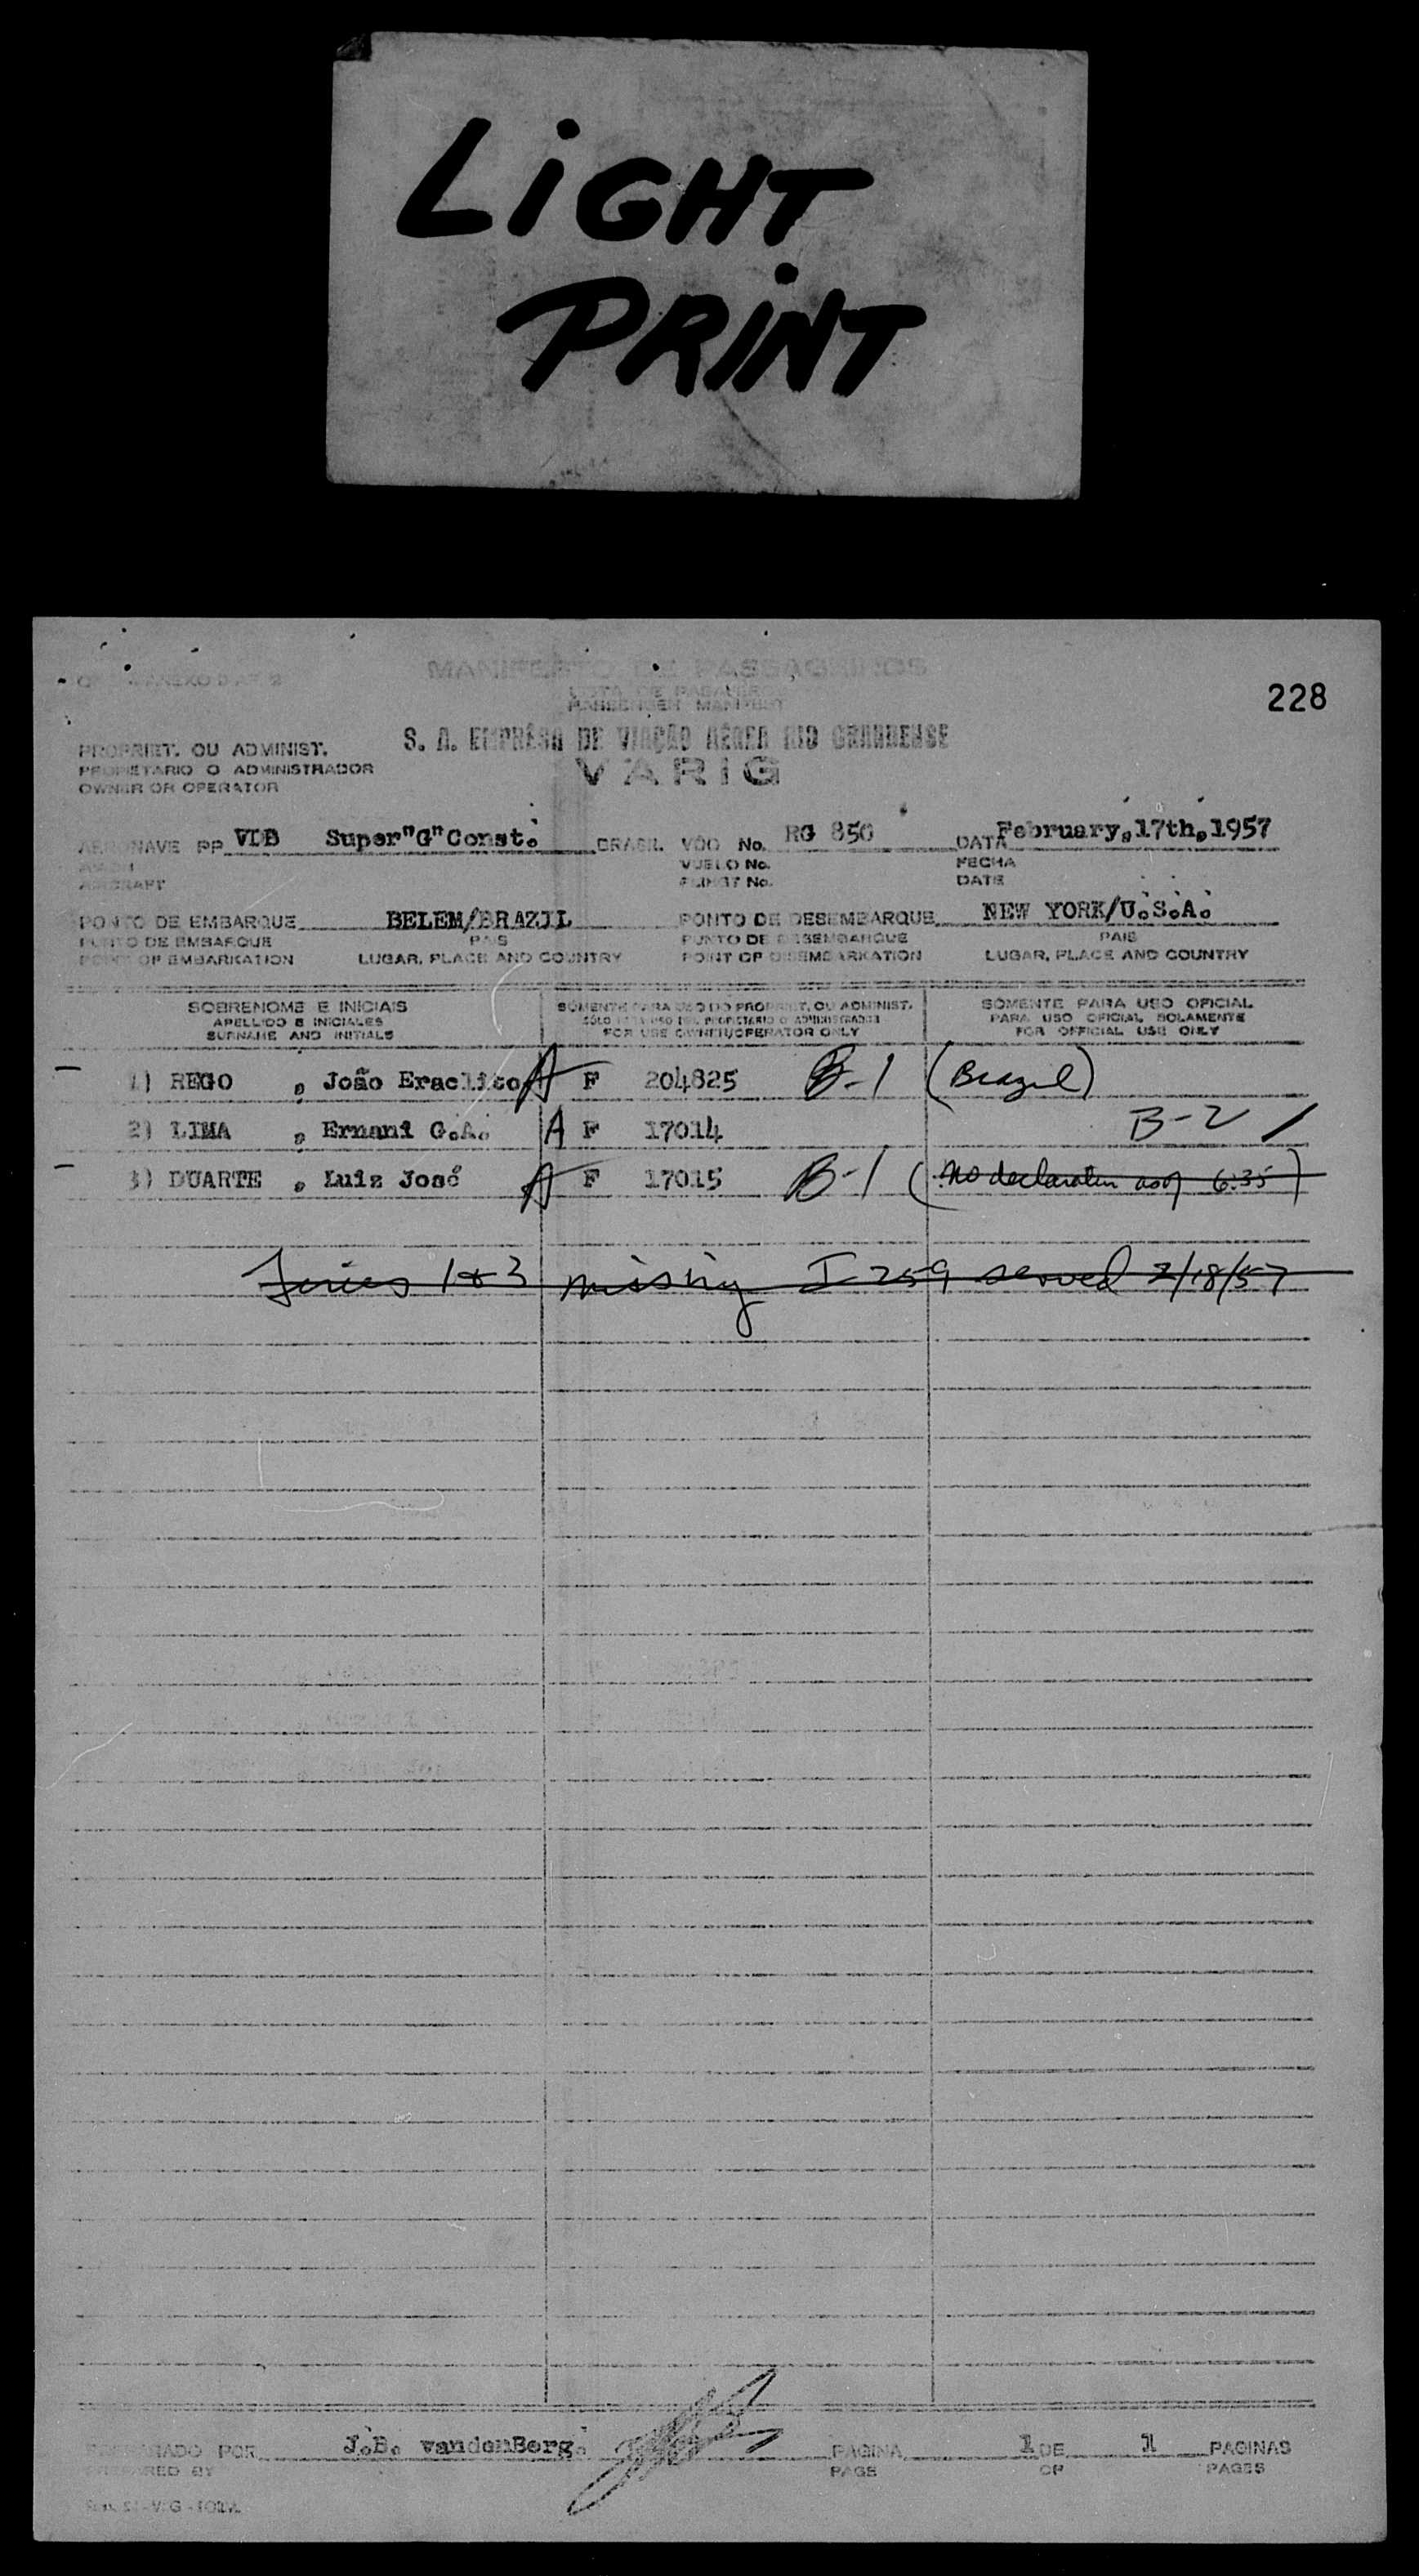 LiGHT
PRiNT
MANIFESTO DE PASSAGEIROS
LISTA DE PASAJEROS
PASSENGER MANIFEST
228
S. A. EMPRÊSA DE VIAÇÃO AÉREA RIO GRANDENSE
VARIG
PROPRIET. OU ADMINIST.
PROPIETARIO O ADMINISTRADOR
OWNER OR OPERATOR
AERONAVE PP VDB Super"G"Const. BRASIL VÔO No. RG 850 DATA February,17th,1957
VUELO No. FECHA
AIRCRAFT FLIGHT No. DATE
PONTO DE EMBARQUE BELEM/BRAZIL PONTO DE DESEMBARQUE NEW YORK/U.S.A.
PUNTO DE EMBARQUE PAIS PUNTO DE DESEMBARQUE PAIS
POINT OF EMBARKATION LUGAR, PLACE AND COUNTRY POINT OF DISEMBARKATION LUGAR, PLACE AND COUNTRY
SOBRENOME E INICIAIS SÓMENTE PARA USO DO PROPRIET. OU ADMINIST. SÓMENTE PARA USO OFICIAL
APELLIDO E INICIALES SÓLO PARA USO DEL PROPIETARIO O ADMINISTRADOR PARA USO OFICIAL SOLAMENTE
SURNAME AND INITIALS FOR USE OWNER/OPERATOR ONLY FOR OFFICIAL USE ONLY
1) REGO , João Eraclito A F 204825 B-1 (Brazil)
2) LIMA , Ernani G.A. A F 17014 B-2 /
3) DUARTE , Luiz José A F 17015 B-1 (No declaration as of 6:35)
1 & 3 missing I-259 served 2/18/57
PREPARADO POR J.B. vandenBerg PAGINA 1 DE 1 PAGINAS
PREPARED BY PAGE OF PAGES